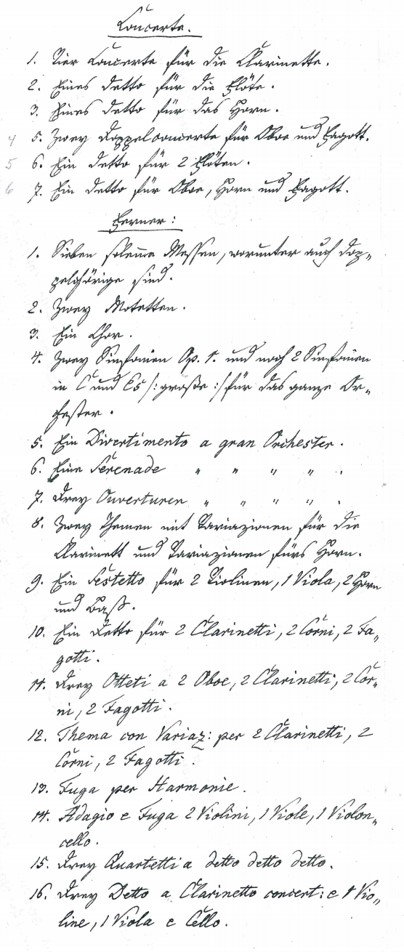 Concerte.
1. Vier Concerte für die Klarinette.
2. Eines detto für die Flöte.
3. Eines detto für das Horn.
4 5. Zwey Doppelconcerte für Oboe und Fagott.
5 6. Ein detto für 2 Flöten.
6 7. Ein detto für Oboe, Horn und Fagott.
Ferner:
1. Sieben solenne Messen, worunter auch dop„
pelchörige sind.
2. Zwey Motetten.
3. Ein Chor.
4. Zwey Sinfonien Op. 1. und noch 2 Sinfonien
in C und Es /: große :/ für das ganze Or„
chester.
5. Ein Divertimento a gran Orchester.
6. Eine Serenade „ „ „ „ .
7. Drey Ouverturen „ „ „ „ .
8. Zwey Themen mit Variazionen für die
Klarinett und Variazionen fürs Horn.
9. Ein Sestetto für 2 Violinen, 1 Viola, 2 Horn
und Baß.
10. Ein Detto für 2 Clarinetti, 2 Corni, 2 Fa„
gotti.
11. Drey Otteti a 2 Oboe, 2 Clarinetti, 2 Cor„
ni, 2 Fagotti.
12. Thema con Variaz: per 2 Clarinetti, 2
Corni, 2 Fagotti.
13. Fuga per Harmonie.
14. Adagio e Fuga 2 Violini, 1 Viole, 1 Violon„
cello.
15. Drey Quartetti a detto detto detto.
16. Drey Detto a Clarinetto concert: e 1 Vio„
line, 1 Viola e Cello.